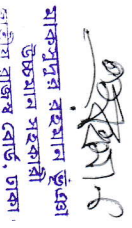 মাকসুদুর রহমান ভূঁঞা
উচ্চমান সহকারী
জাতীয় রাজস্ব বোর্ড, ঢাকা।